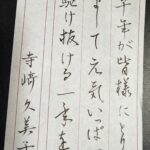 午年が皆様にとり
まして元気いっぱい
駆け抜ける一年を
寺崎久美子